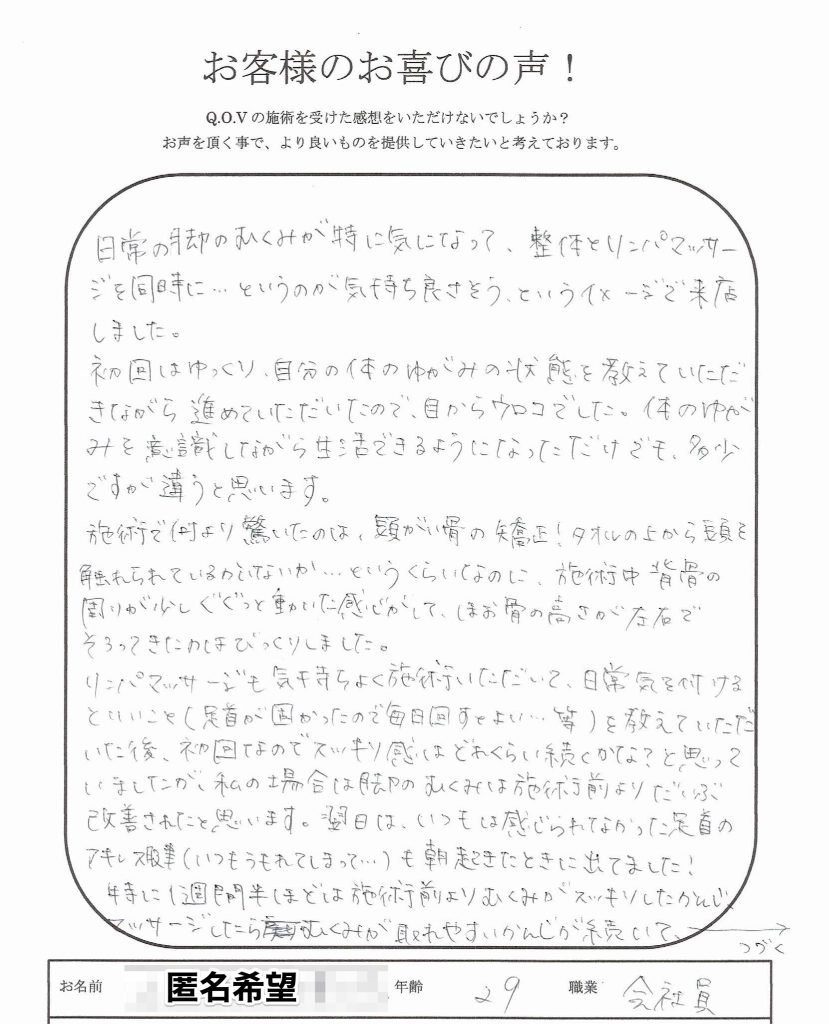 お客様のお喜びの声！
Q.O.Vの施術を受けた感想をいただけないでしょうか？
お声を頂く事で、より良いものを提供していきたいと考えております。
日常の脚のむくみが特に気になって、整体とリンパマッサー
ジを同時に…というのが気持ち良さそう、というイメージで来店
しました。
初回はゆっくり、自分の体のゆがみの状態を教えていただ
きながら進めていただいたので、目からウロコでした。体のゆが
みを意識しながら生活できるようになっただけでも、多少
ですが違うと思います。
施術で何より驚いたのは、頭がい骨の矯正！タオルの上から頭を
触れられているかいないか…というくらいなのに、施術中背骨の
周りが少しぐぐっと動いた感じがして、ほお骨の高さが左右で
そろってきたのはびっくりしました。
リンパマッサージも気持ちよく施術いただいて、日常気を付ける
といいこと（足首が固かったので毎日回すとよい…等）を教えていただ
いた後、初回なのでスッキリ感はどれくらい続くかな？と思って
いましたが、私の場合は脚のむくみは施術前よりだいぶ
改善されたと思います。翌日は、いつもは感じられなかった足首の
アキレス腱（いつもうもれてしまって…）も朝起きたときに出てました！
特に1週間半ほどは施術前よりむくみがスッキリしたかんじ、
マッサージしたらむくみが取れやすいかんじが続いて、→
つづく
お名前 匿名希望 年齢 29 職業 会社員